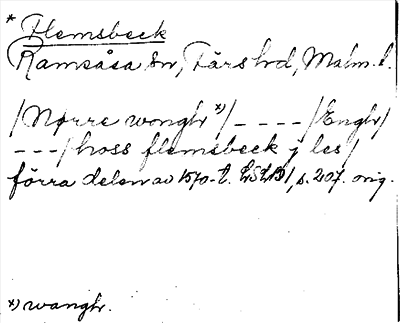 * Flemsbeck
Ramsåsa sn, Färs hd, Malm. l.
/Nørre wonghr *)/ _ _ _ _ /Enghr/
_ _ _ /hoss flemsbeck j les/
förra delen av 1570-t. s. 207. orig.
*) wanghr.